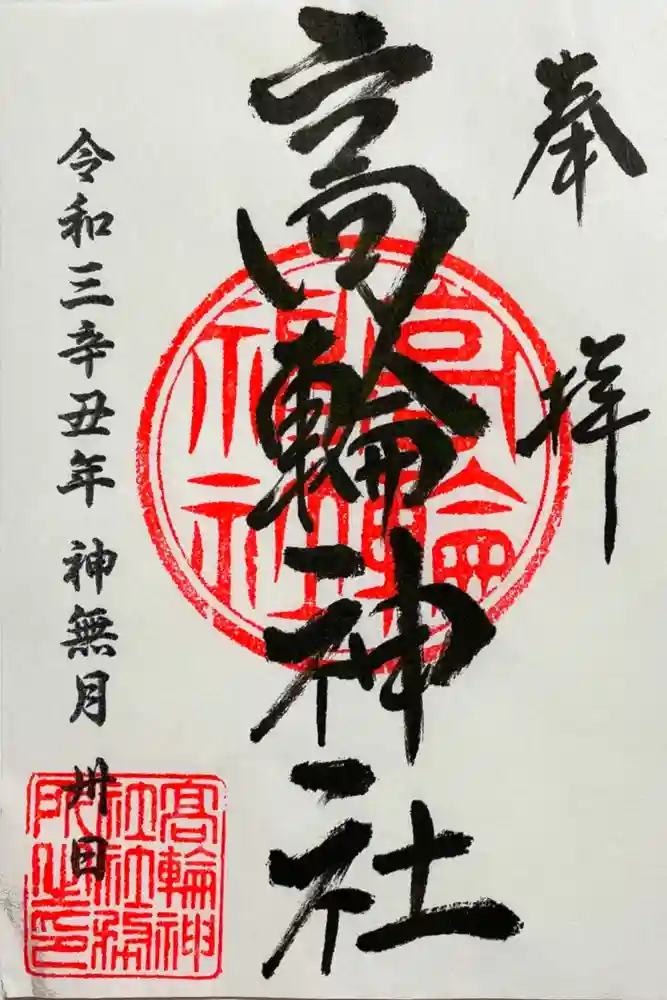 奉拝
高輪神社
高輪
神社
令和三辛丑年 神無月 卅日
高輪神
社社務
所之印